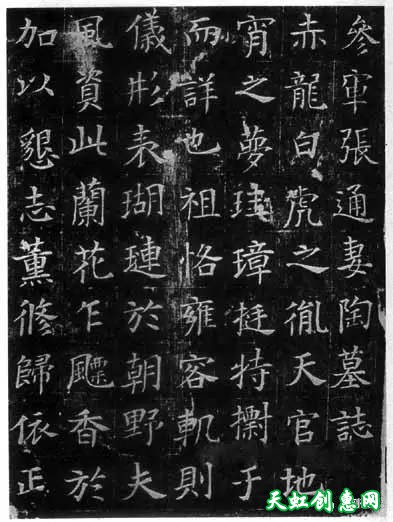 參軍張通妻陶墓誌
赤龍白虎之胤天官地
宵之夢珪璋挺特擢于
而詳也祖恪雍容軌則
儀形表瑚璉於朝野夫
風資此蘭花乍飄香於
加以懇志薰修歸依正
天虹创惠网